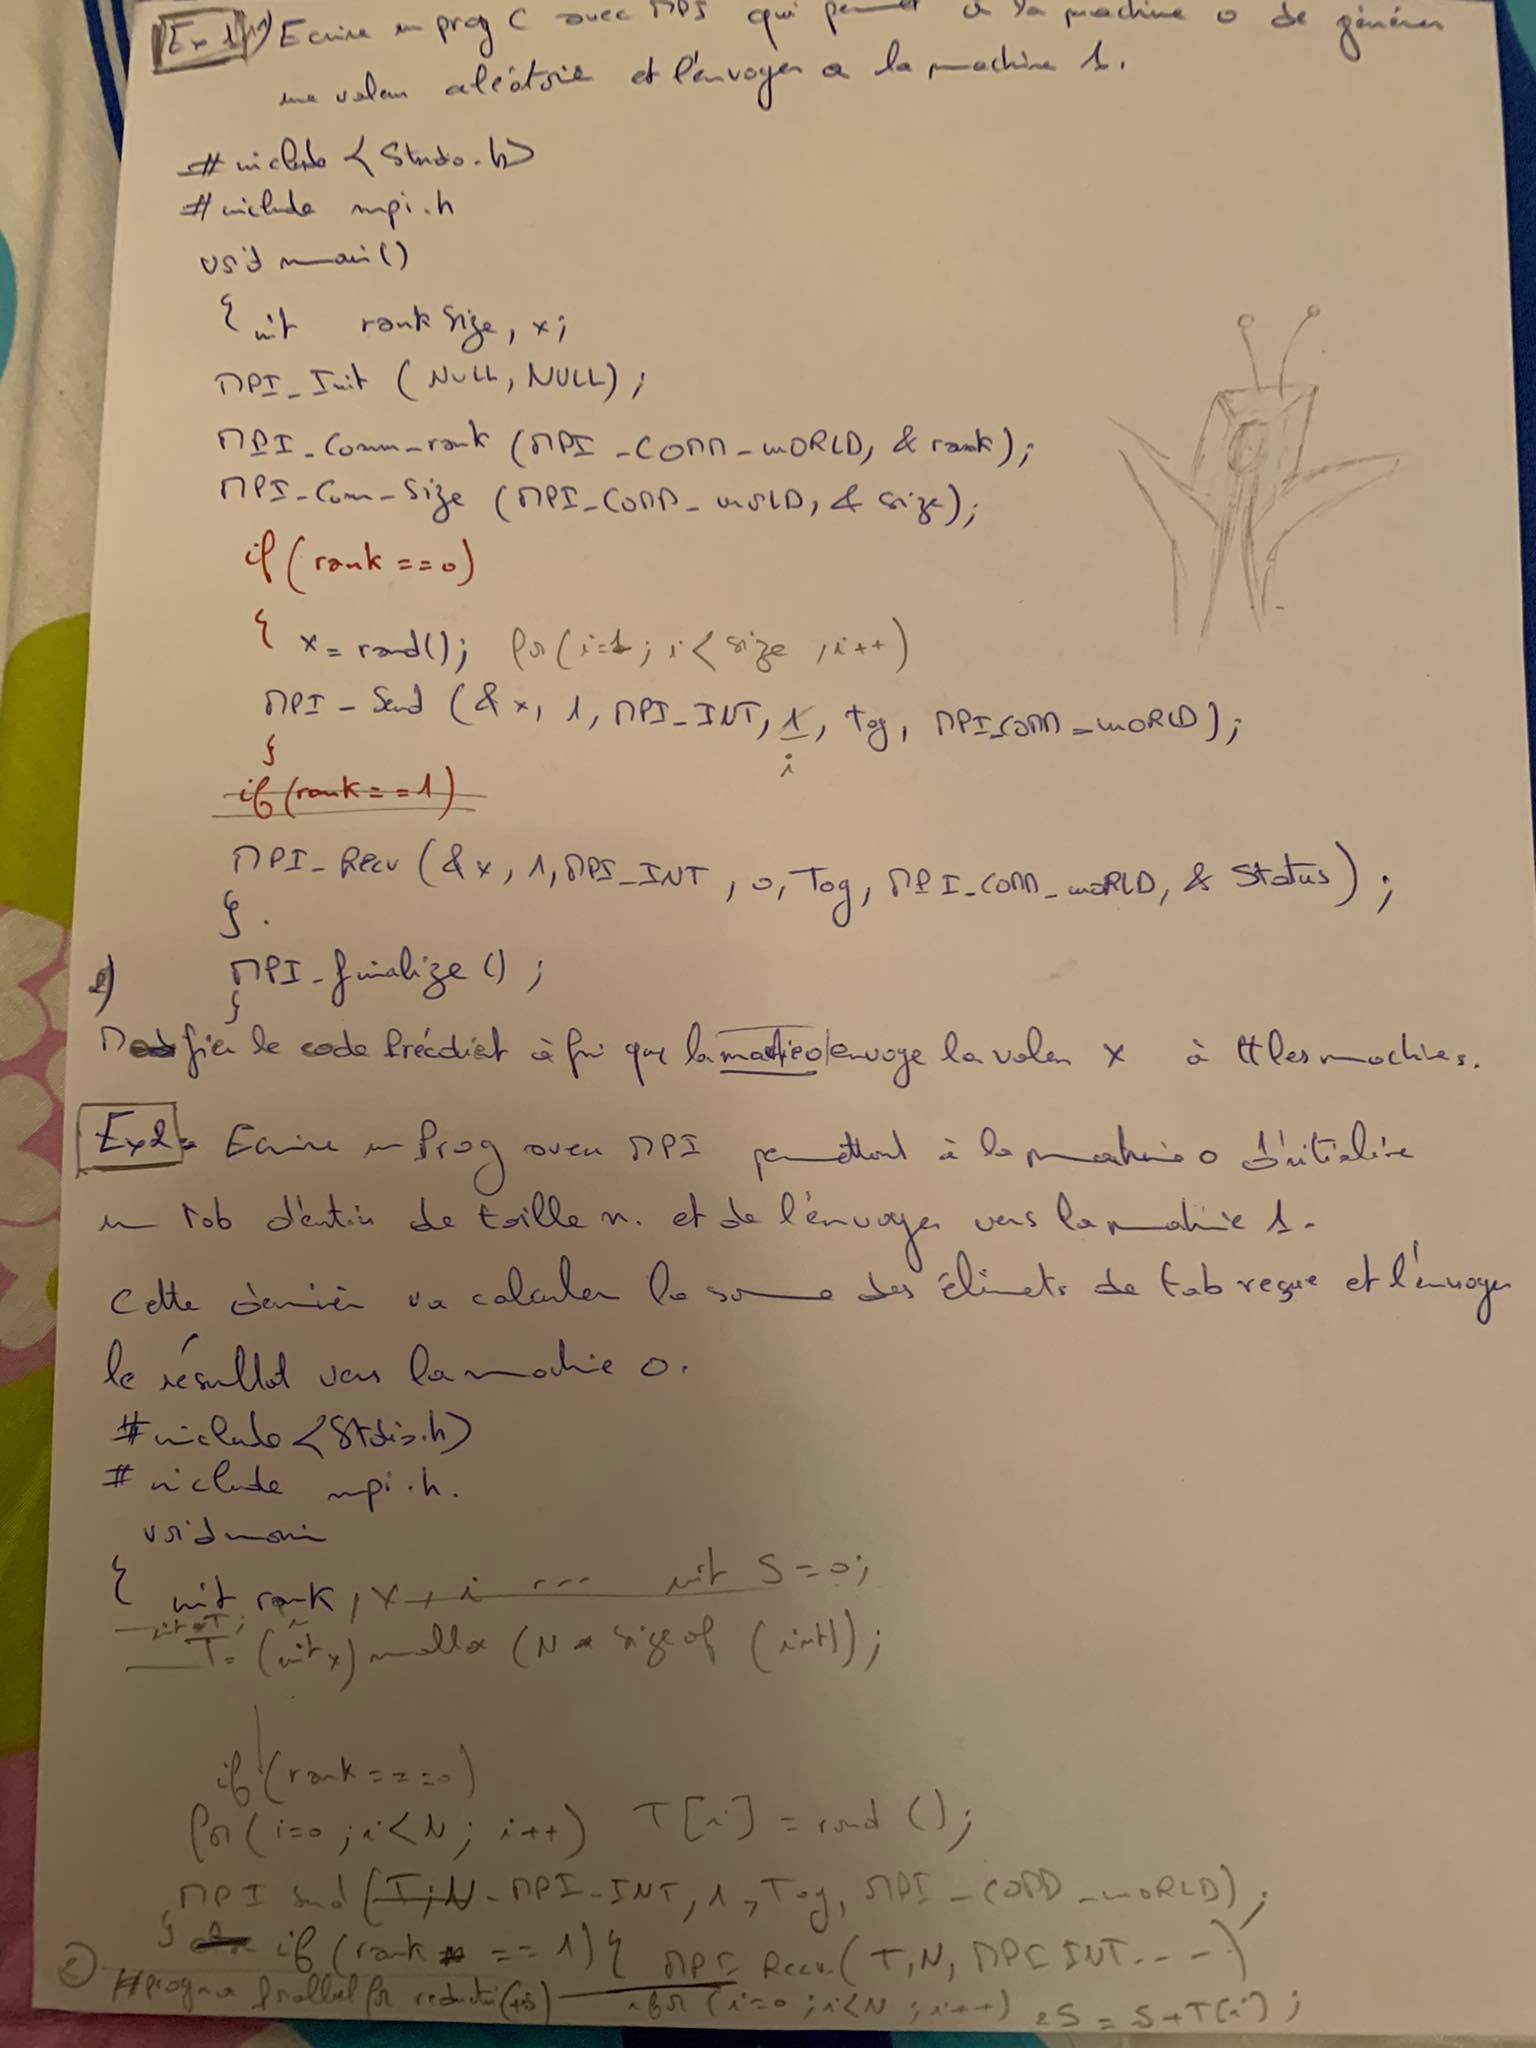 Ex 1 1) Ecrire un prog C avec MPI qui permet à la machine 0 de générer
une valeur aléatoire et l'envoyer a la machine 1.
#include <Stndo.h>
#include mpi.h
void main()
{ int rank size, x;
MPI_Init (NULL, NULL);
MPI_Comm_rank (MPI_COMM_WORLD, & rank);
MPI_Com_Size (MPI_COMM_WORLD, & size);
if (rank == 0)
{ x = rand(); for (i=1; i < size, i++)
MPI_Send (& x, 1, MPI_INT, 1, Tag, MPI_COMM_WORLD);
} i
if (rank == 1)
MPI_Recv (& x, 1, MPI_INT, 0, Tag, MPI_COMM_WORLD, & Status);
}.
2) MPI_finalize();
}
Modifier le code Précédent à fin que la machine 0 envoye la valeur x à tt les machines.
Ex2: Ecrire un Prog avec MPI permettant à la machine 0 d'initialire
un Tab d'entier de taille n. et de l'envoyer vers la machine 1.
Cette dernière va calculer la somme des éléments de tab reçue et l'envoyer
le résultat vers la machine 0.
#include <Stdio.h>
#include mpi.h.
void main
{ int rank, x, i --- int S = 0;
int *T;
T = (int *) malloc (N * Size of (int));
if (rank === 0)
for (i=0; i<N; i++) T[i] = rand ();
MPI Send (T, N - MPI_INT, 1, Tag, MPI_COMM_WORLD);
} if (rank == 1) { MPI Recv. (T, N, MPI INT...-)
2) #progma Parallel for reduction(+:S) for (i=0; i<N; i++) S = S+T[i];